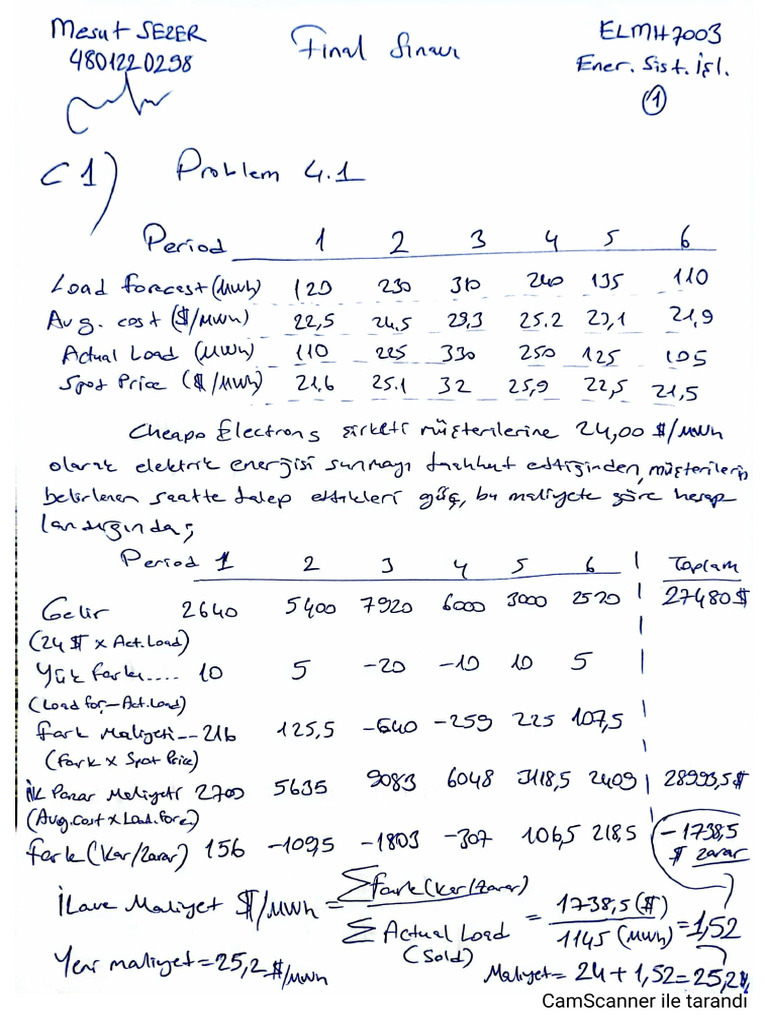 Mesut SEZER
4801220298
Final Sınavı
ELMH7003
Ener. Sist. İşl.
1
C1) Problem 4.1
Period 1 2 3 4 5 6
Load forecast (MWh) 120 230 310 240 135 110
Avg. cost ($/MWh) 22,5 24,5 29,3 25.2 23,1 21,9
Actual Load (MWh) 110 225 330 250 125 105
Spot Price ($/MWh) 21.6 25.1 32 25,9 22,5 21,5
Cheapo Electrons şirketi müşterilerine 24,00 $/MWh
olarak elektrik energisi sunmayı taahhut ettiğinden, müşterilerin
belirlenen saatte talep ettikleri güç, bu maliyete göre hesap
landığında;
Period 1 2 3 4 5 6 Toplam
Gelir 2640 5400 7920 6000 3000 2520 27480$
(24 $ x Act.Load)
Yük farkı.... 10 5 -20 -10 10 5
(Load for,-Act.Load)
fark Maliyeti--216 125,5 -640 -259 225 107,5
(Fark x Spot Price)
ilk Pazar Maliyeti 2700 5635 9083 6048 3118,5 2409 28993,5$
(Avg.cost x Load.fore)
fark (Kar/Zarar) 156 -109,5 -1803 -307 106,5 218,5 -1738,5
$ zarar
İlave Maliyet $/MWh = ∑fark(Kar/Zarar) / ∑ Actual Load (Sold) = 1738,5 ($) / 1145 (MWh) = 1,52
Yeni maliyet = 25,2 $/MWh
Maliyet = 24 + 1,52 = 25,2 $
CamScanner ile tarandı